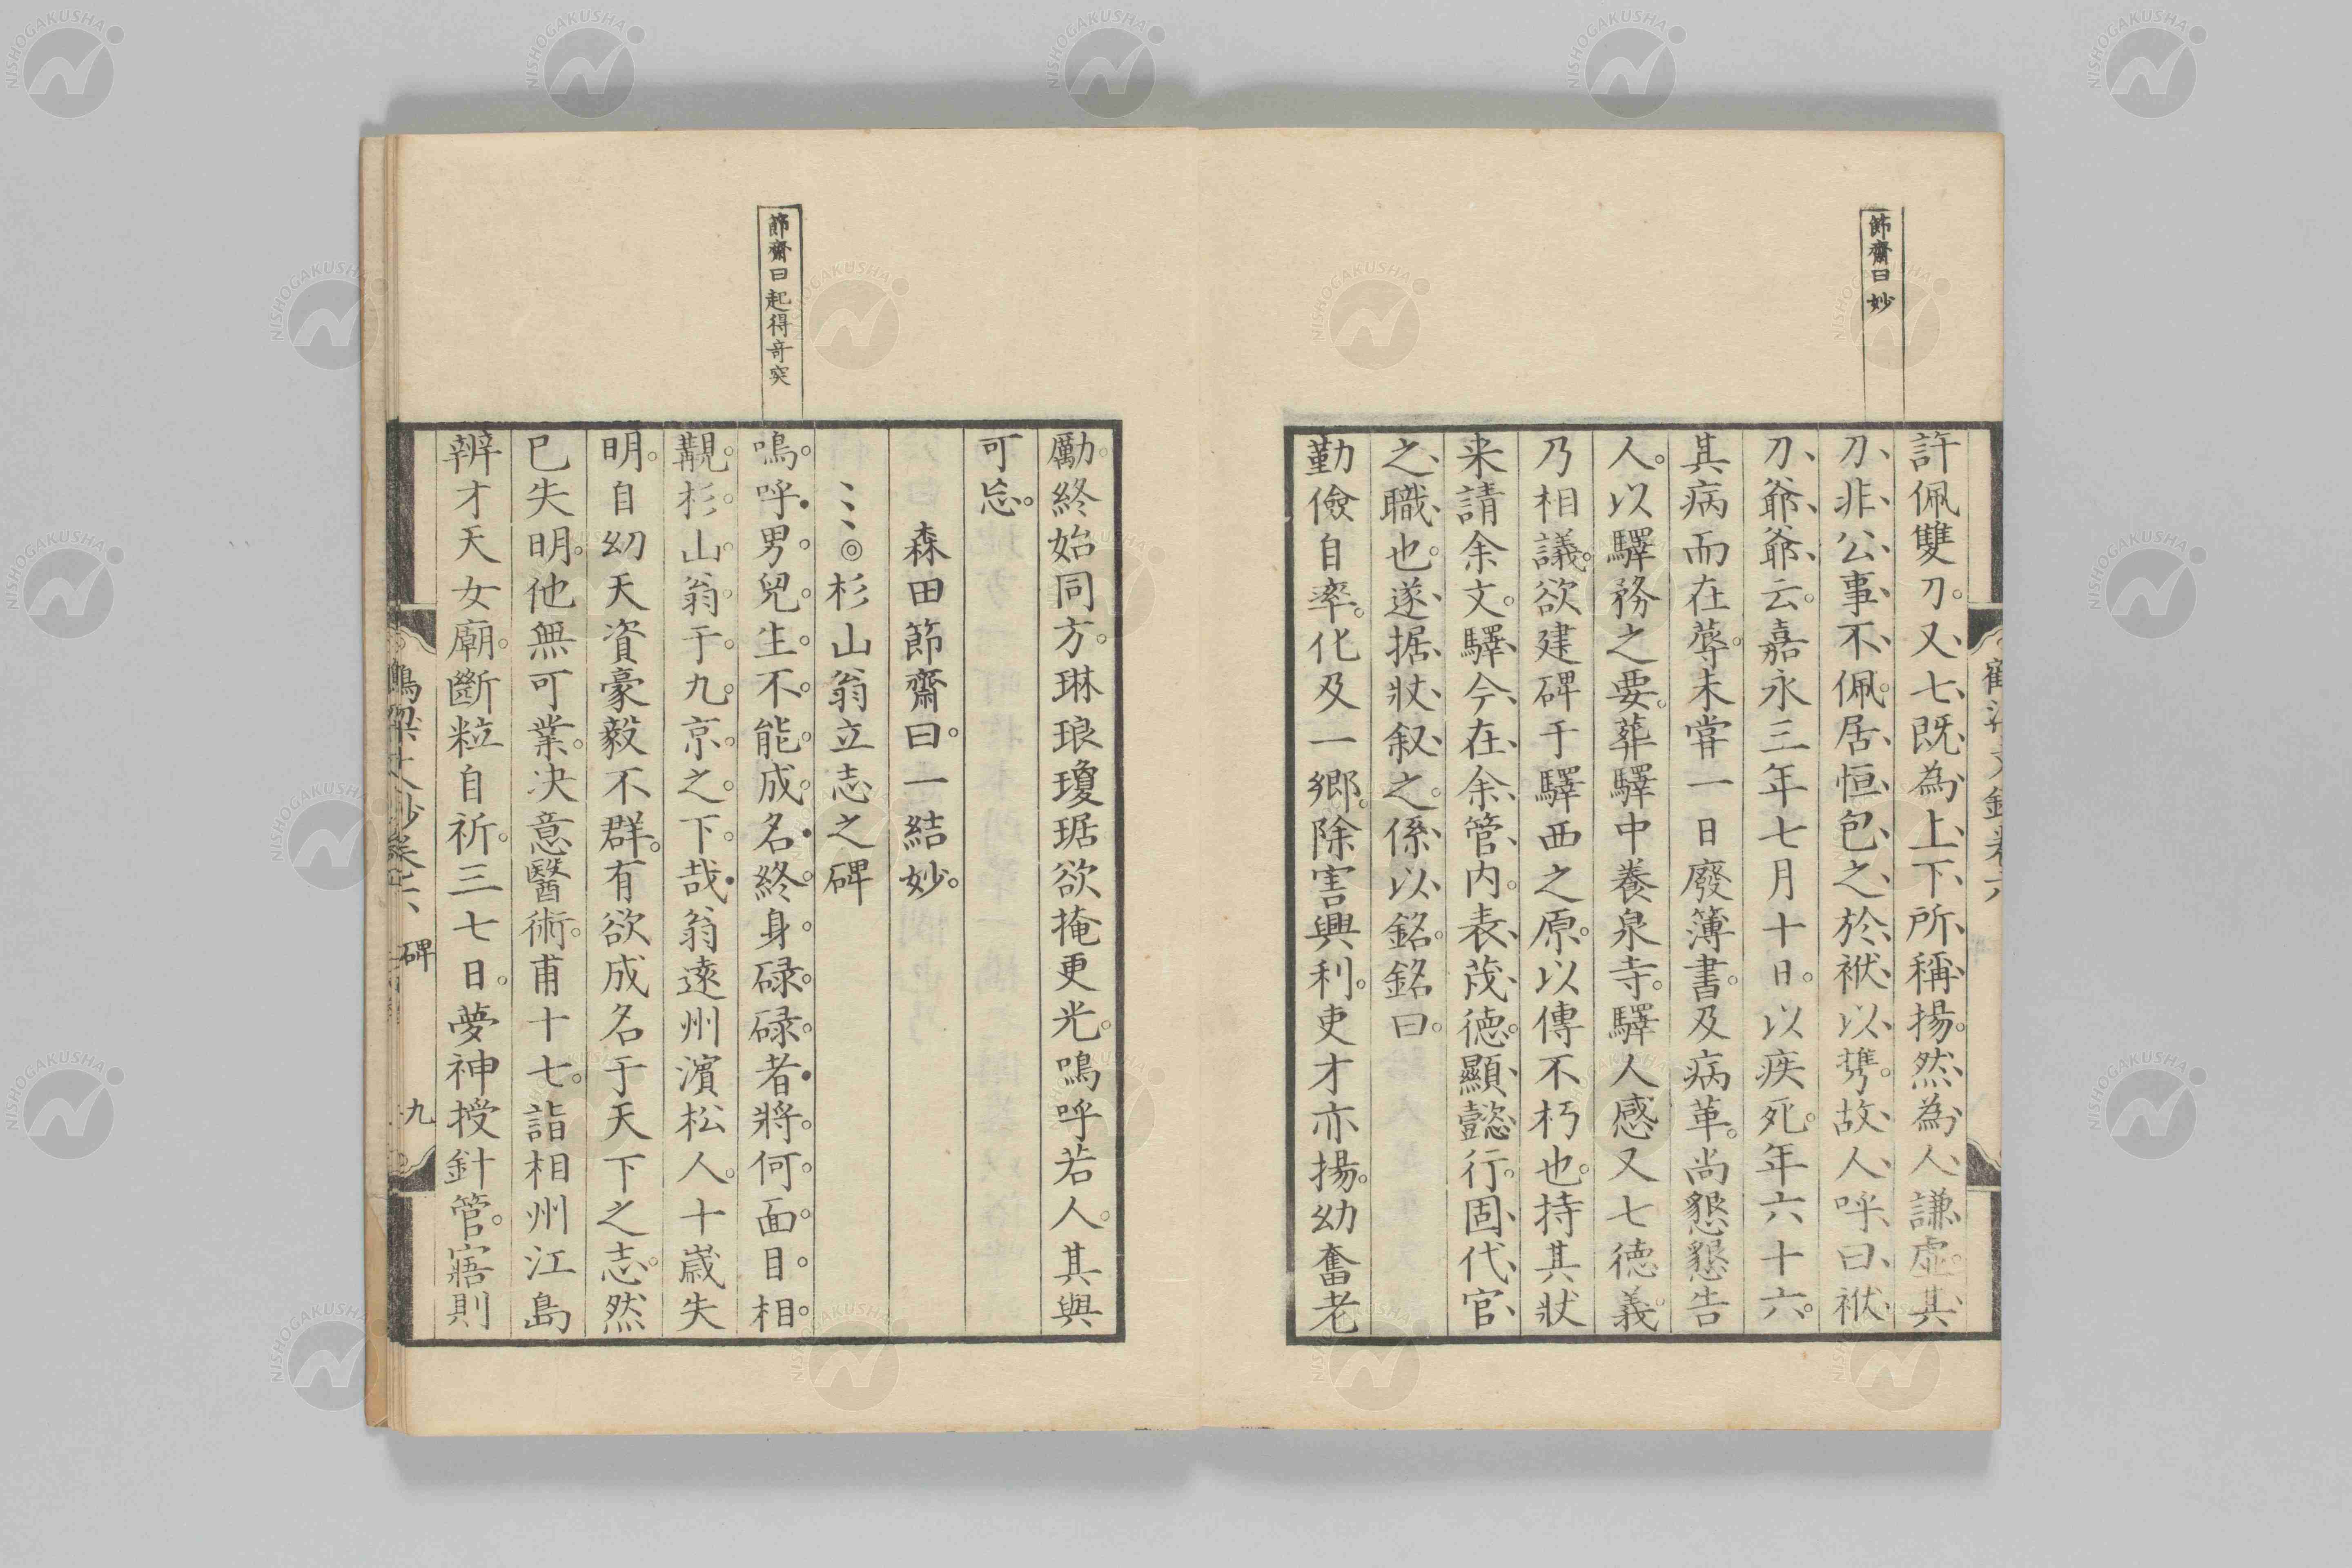 節齋曰妙
許佩雙刀。又七既為上下所稱揚。然為人謙虚。其
刀非公事不佩。居恒包之於袱以携。故人呼曰袱
刀爺爺云。嘉永三年七月十日。以疾死。年六十六。
其病而在蓐。未嘗一日廢簿書。及病革。尚懇懇告
人。以驛務之要。葬驛中養泉寺。驛人感又七德義。
乃相議。欲建碑于驛西之原。以傳不朽也。持其狀
来請余文。驛今在余管内。表茂徳。顯懿行。固代官
之職也。遂据狀叙之。係以銘。銘曰。
勤儉自率。化及一鄉。除害興利。吏才亦揚。幼奮老
勵。終始同方。琳琅瓊琚。欲掩更光。嗚呼若人。其與
可忘。
森田節齋曰。一結妙。
〻◎杉山翁立志之碑
節齋曰起得奇突
嗚呼。男兒生不能成名。終身碌碌者。將何面目。相
覯杉山翁于九京之下哉。翁遠州濱松人。十歳失
明。自幼天資豪毅不群。有欲成名于天下之志。然
已失明。他無可業。决意醫術。甫十七。詣相州江島
辨才天女廟。斷粒自祈。三七日。夢神授針管。寤則
碑
九